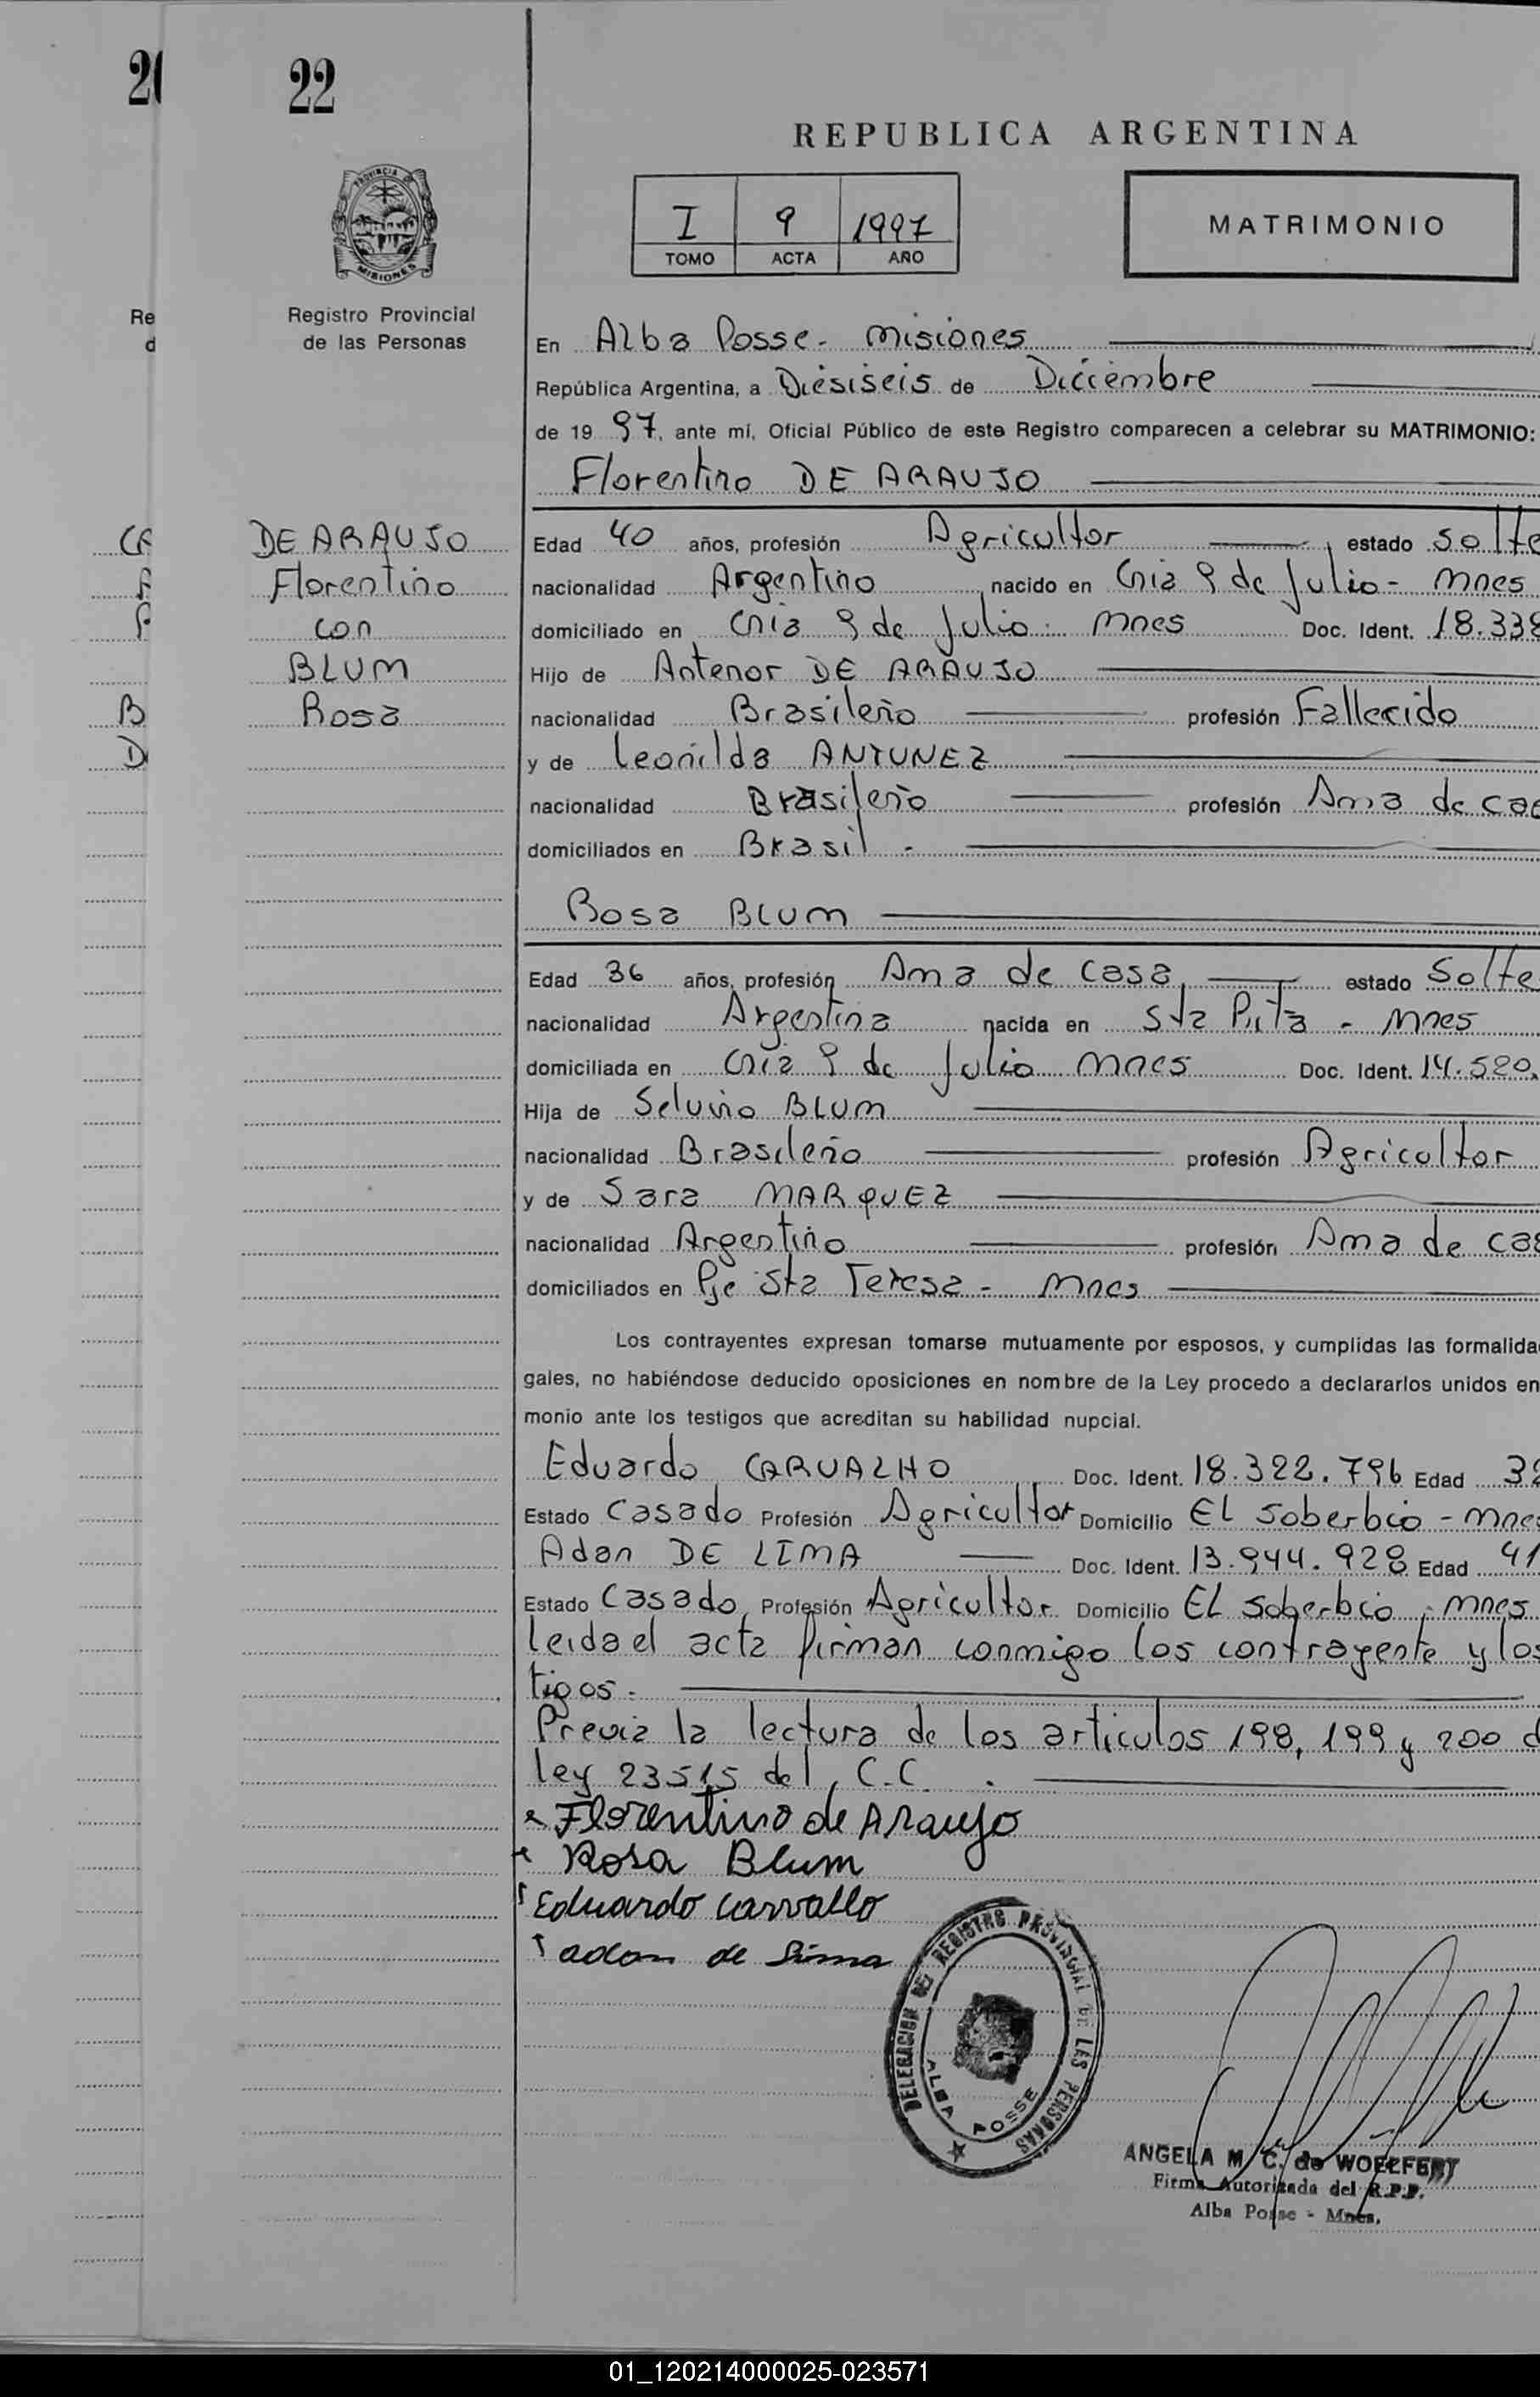 22
REPUBLICA ARGENTINA
PROVINCIA DE
MISIONES
I 9 1997
TOMO ACTA AÑO
MATRIMONIO
Registro Provincial
de las Personas
En Alba Posse - Misiones
República Argentina, a Diesiseis de Diciembre
de 19 97, ante mí, Oficial Público de este Registro comparecen a celebrar su MATRIMONIO:
Florentino DE ARAUJO
DE ARAUJO
Florentino
con
BLUM
Rosa
Edad 40 años, profesión Agricultor estado solte
nacionalidad Argentino nacido en Cnia 9 de Julio - Mnes
domiciliado en Cnia 9 de Julio - Mnes Doc. Ident. 18.338
Hijo de Antenor DE ARAUJO
nacionalidad Brasileño profesión Fallecido
y de Leonilda ANTUNEZ
nacionalidad Brasileño profesión Ama de cas
domiciliados en Brasil -
Rosa BLUM
Edad 36 años, profesión Ama de casa estado Solte
nacionalidad Argentina nacida en Sta Rita - Mnes
domiciliada en Cnia 9 de Julio Mnes Doc. Ident. 14.520.
Hija de Selvino BLUM
nacionalidad Brasileño profesión Agricultor
y de Sara MARQUEZ
nacionalidad Argentino profesión Ama de cas
domiciliados en Pje Sta Teresa - Mnes
Los contrayentes expresan tomarse mutuamente por esposos, y cumplidas las formalida
gales, no habiéndose deducido oposiciones en nombre de la Ley procedo a declararlos unidos en
monio ante los testigos que acreditan su habilidad nupcial.
Eduardo CARVALHO Doc. Ident. 18.322.796 Edad 32
Estado Casado Profesión Agricultor Domicilio EL Soberbio - Mnes
Adan DE LIMA Doc. Ident. 13.944.928 Edad 41
Estado Casado Profesión Agricultor Domicilio EL Soberbio - Mnes
leida el acta firman conmigo los contrayente y los
tigos.
Previa la lectura de los articulos 198, 199 y 200 d
ley 23515 del C.C.
Florentino de Araujo
Rosa Blum
Eduardo Carvallo
adan de Lima
DELEGACION DEL REGISTRO PROVINCIAL DE LAS PERSONAS
ALBA POSSE
ANGELA M. C. de WOELFERT
Firma Autorizada del R.P.P.
Alba Posse - Mnes.
01_120214000025-023571